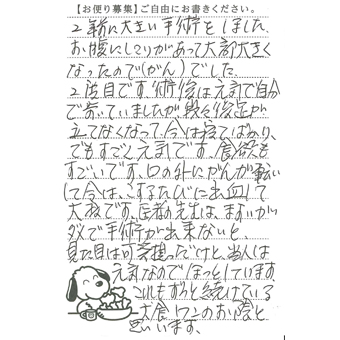 【お便り募集】ご自由にお書きください。
2年前に大きい手術をしました。
お腹にしこりがあって大部大きく
なったので(がん)でした。
2度目です。手術後は元気で自分
で歩いていましたが、段々後足が
立てなくなって、今は寝てばかり、
でもすごく元気です。食欲も
すごいです。口の外にがんが転い
して今は、こするたびに出血して
大変です。医者の先生は、まずいがい
ダメで手術が出来ないと、
見た目は可哀想っだけど、当人は
元気なのでほっとしています。
これもずっと続けている
犬食ワンのお陰と
思います。